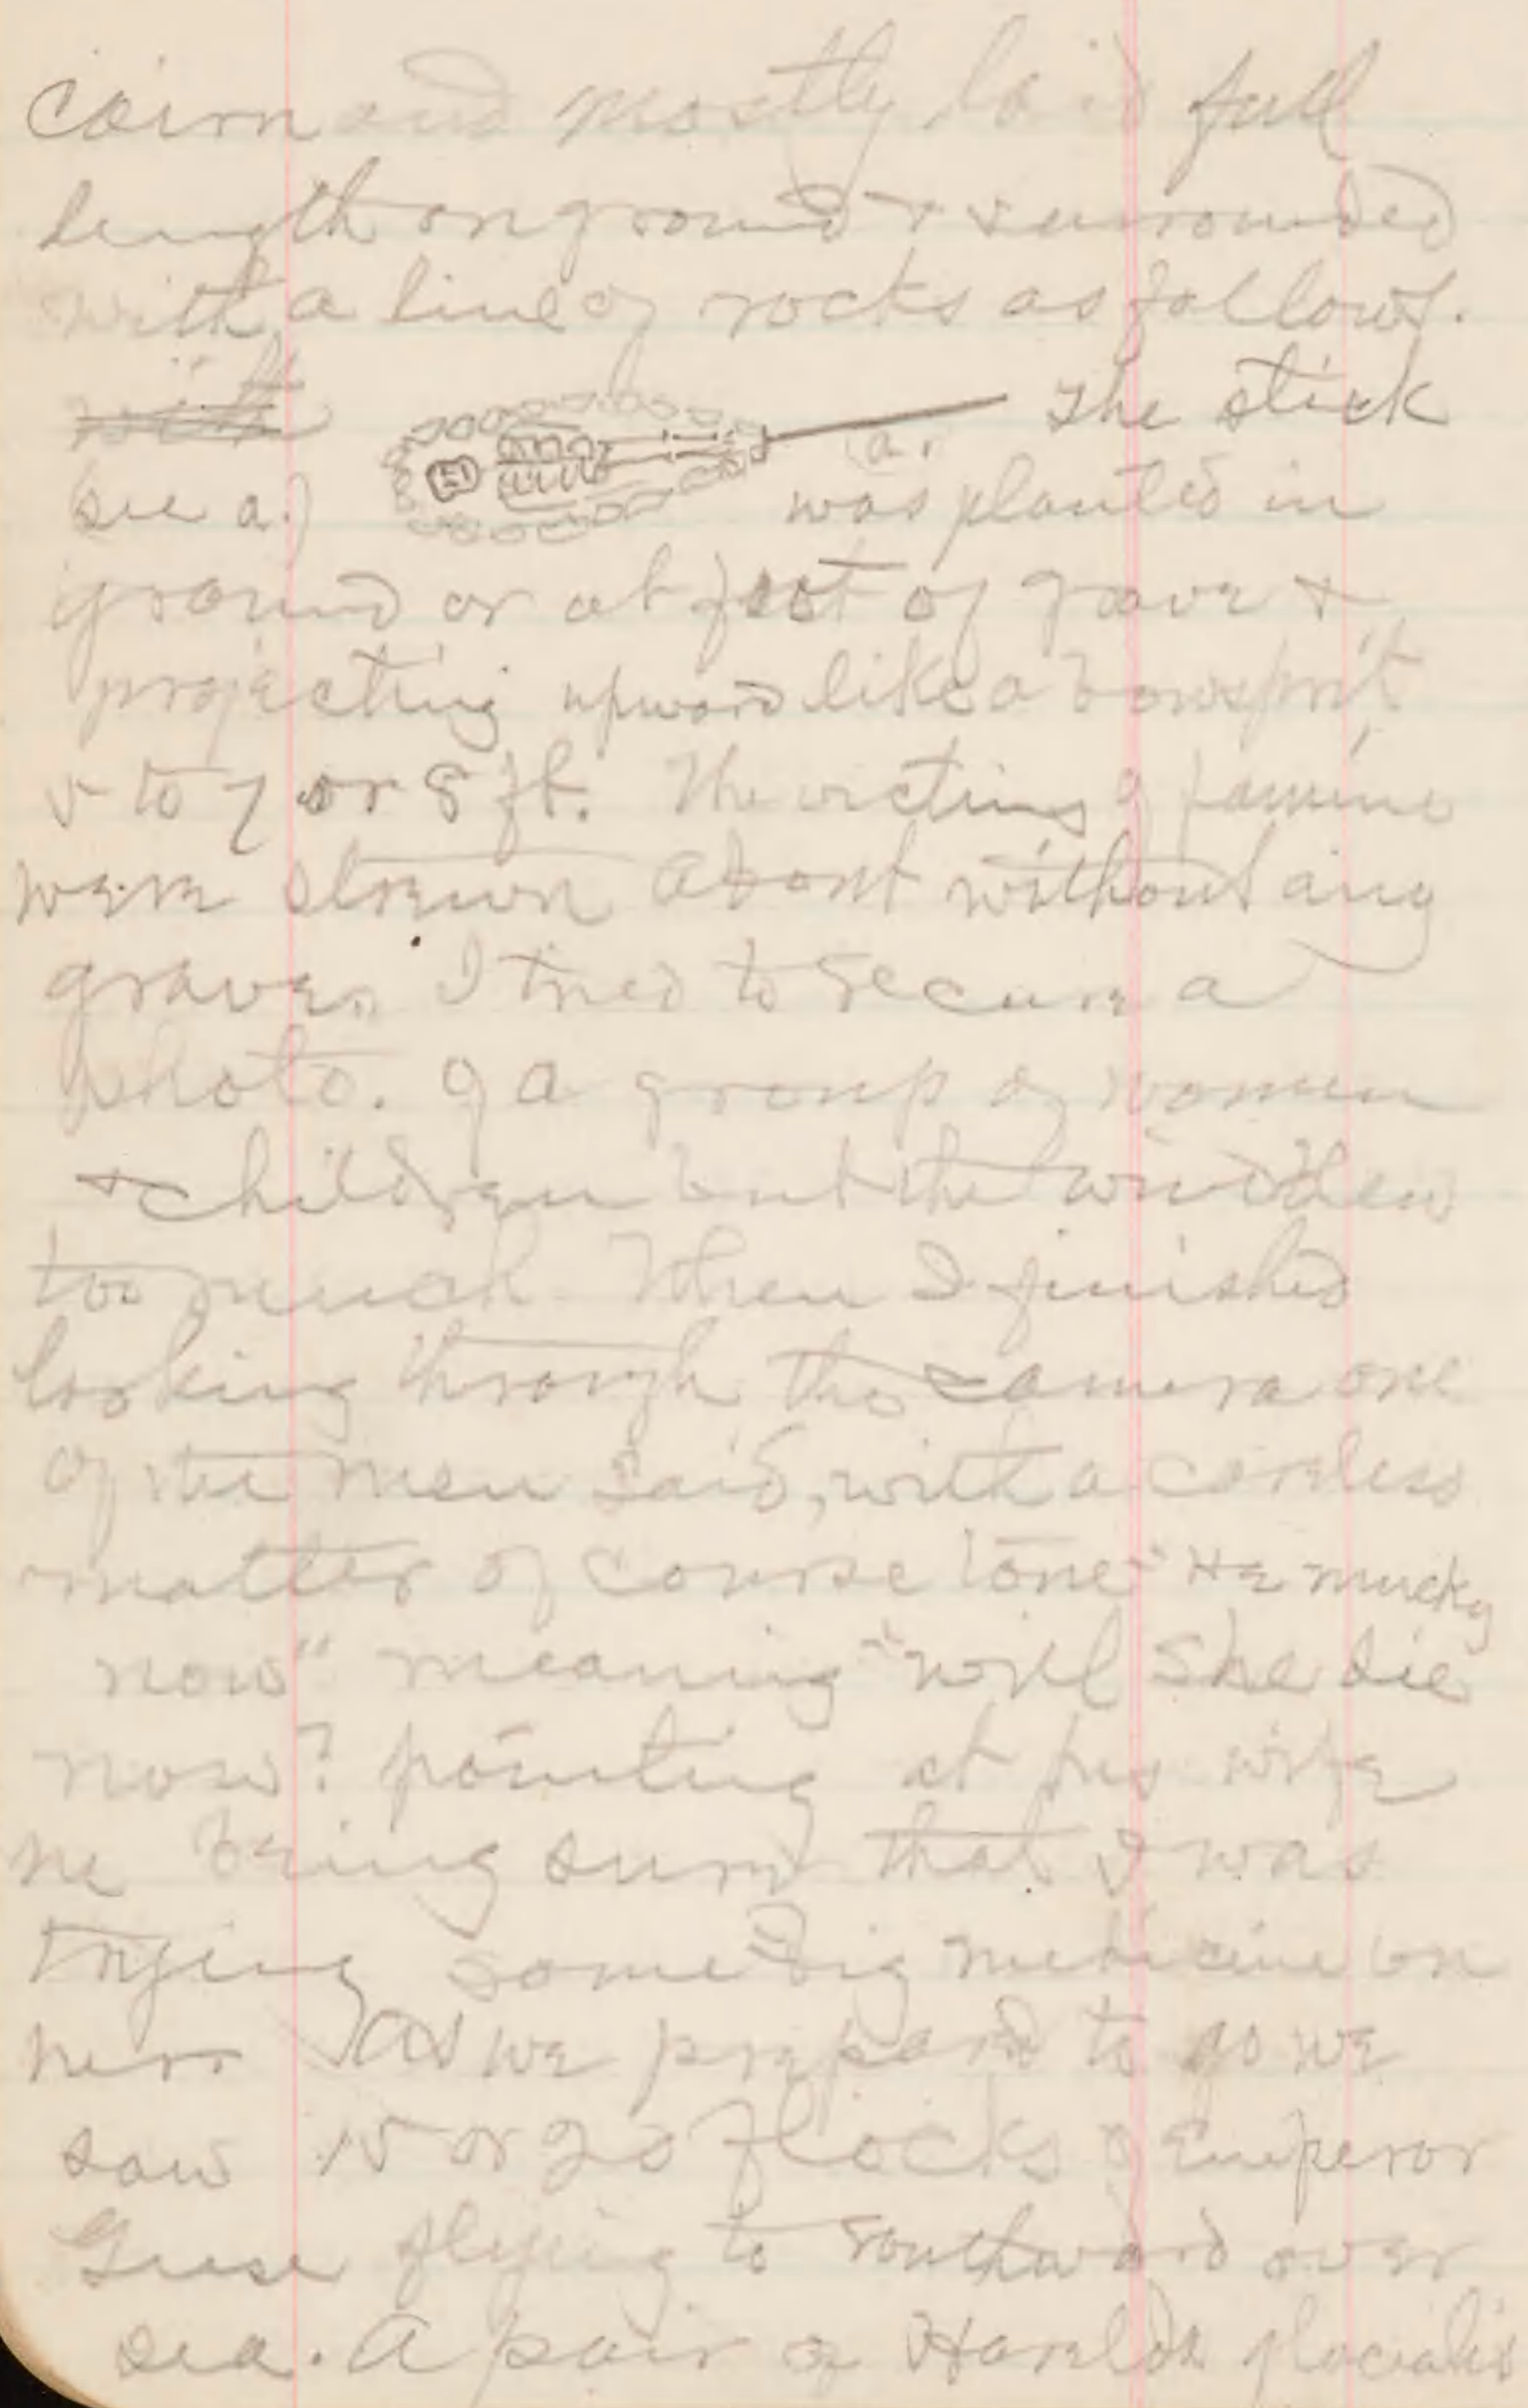 cairn and mostly laid full
length on ground & surrounded
with a line of rocks as follows.
with The stick
(see a.) a. was planted in
ground or at foot of grave &
projecting upward like a bowsprit
5 to 7 or 8 ft. The victims of famine
were strewn about without any
graves. I tried to secure a
photo. of a group of women
& children but the wind blew
too much. When I finished
looking through the camera one
of the men said, with a careless
matter of course tone "He mucky
now" meaning "will she die
now? pointing at his wife
he being sure that I was
trying some big medicine on
her. As we prepared to go we
saw 15 or 20 flocks of Emperor
Geese flying to southward over
sea. A pair of Harelda glacialis